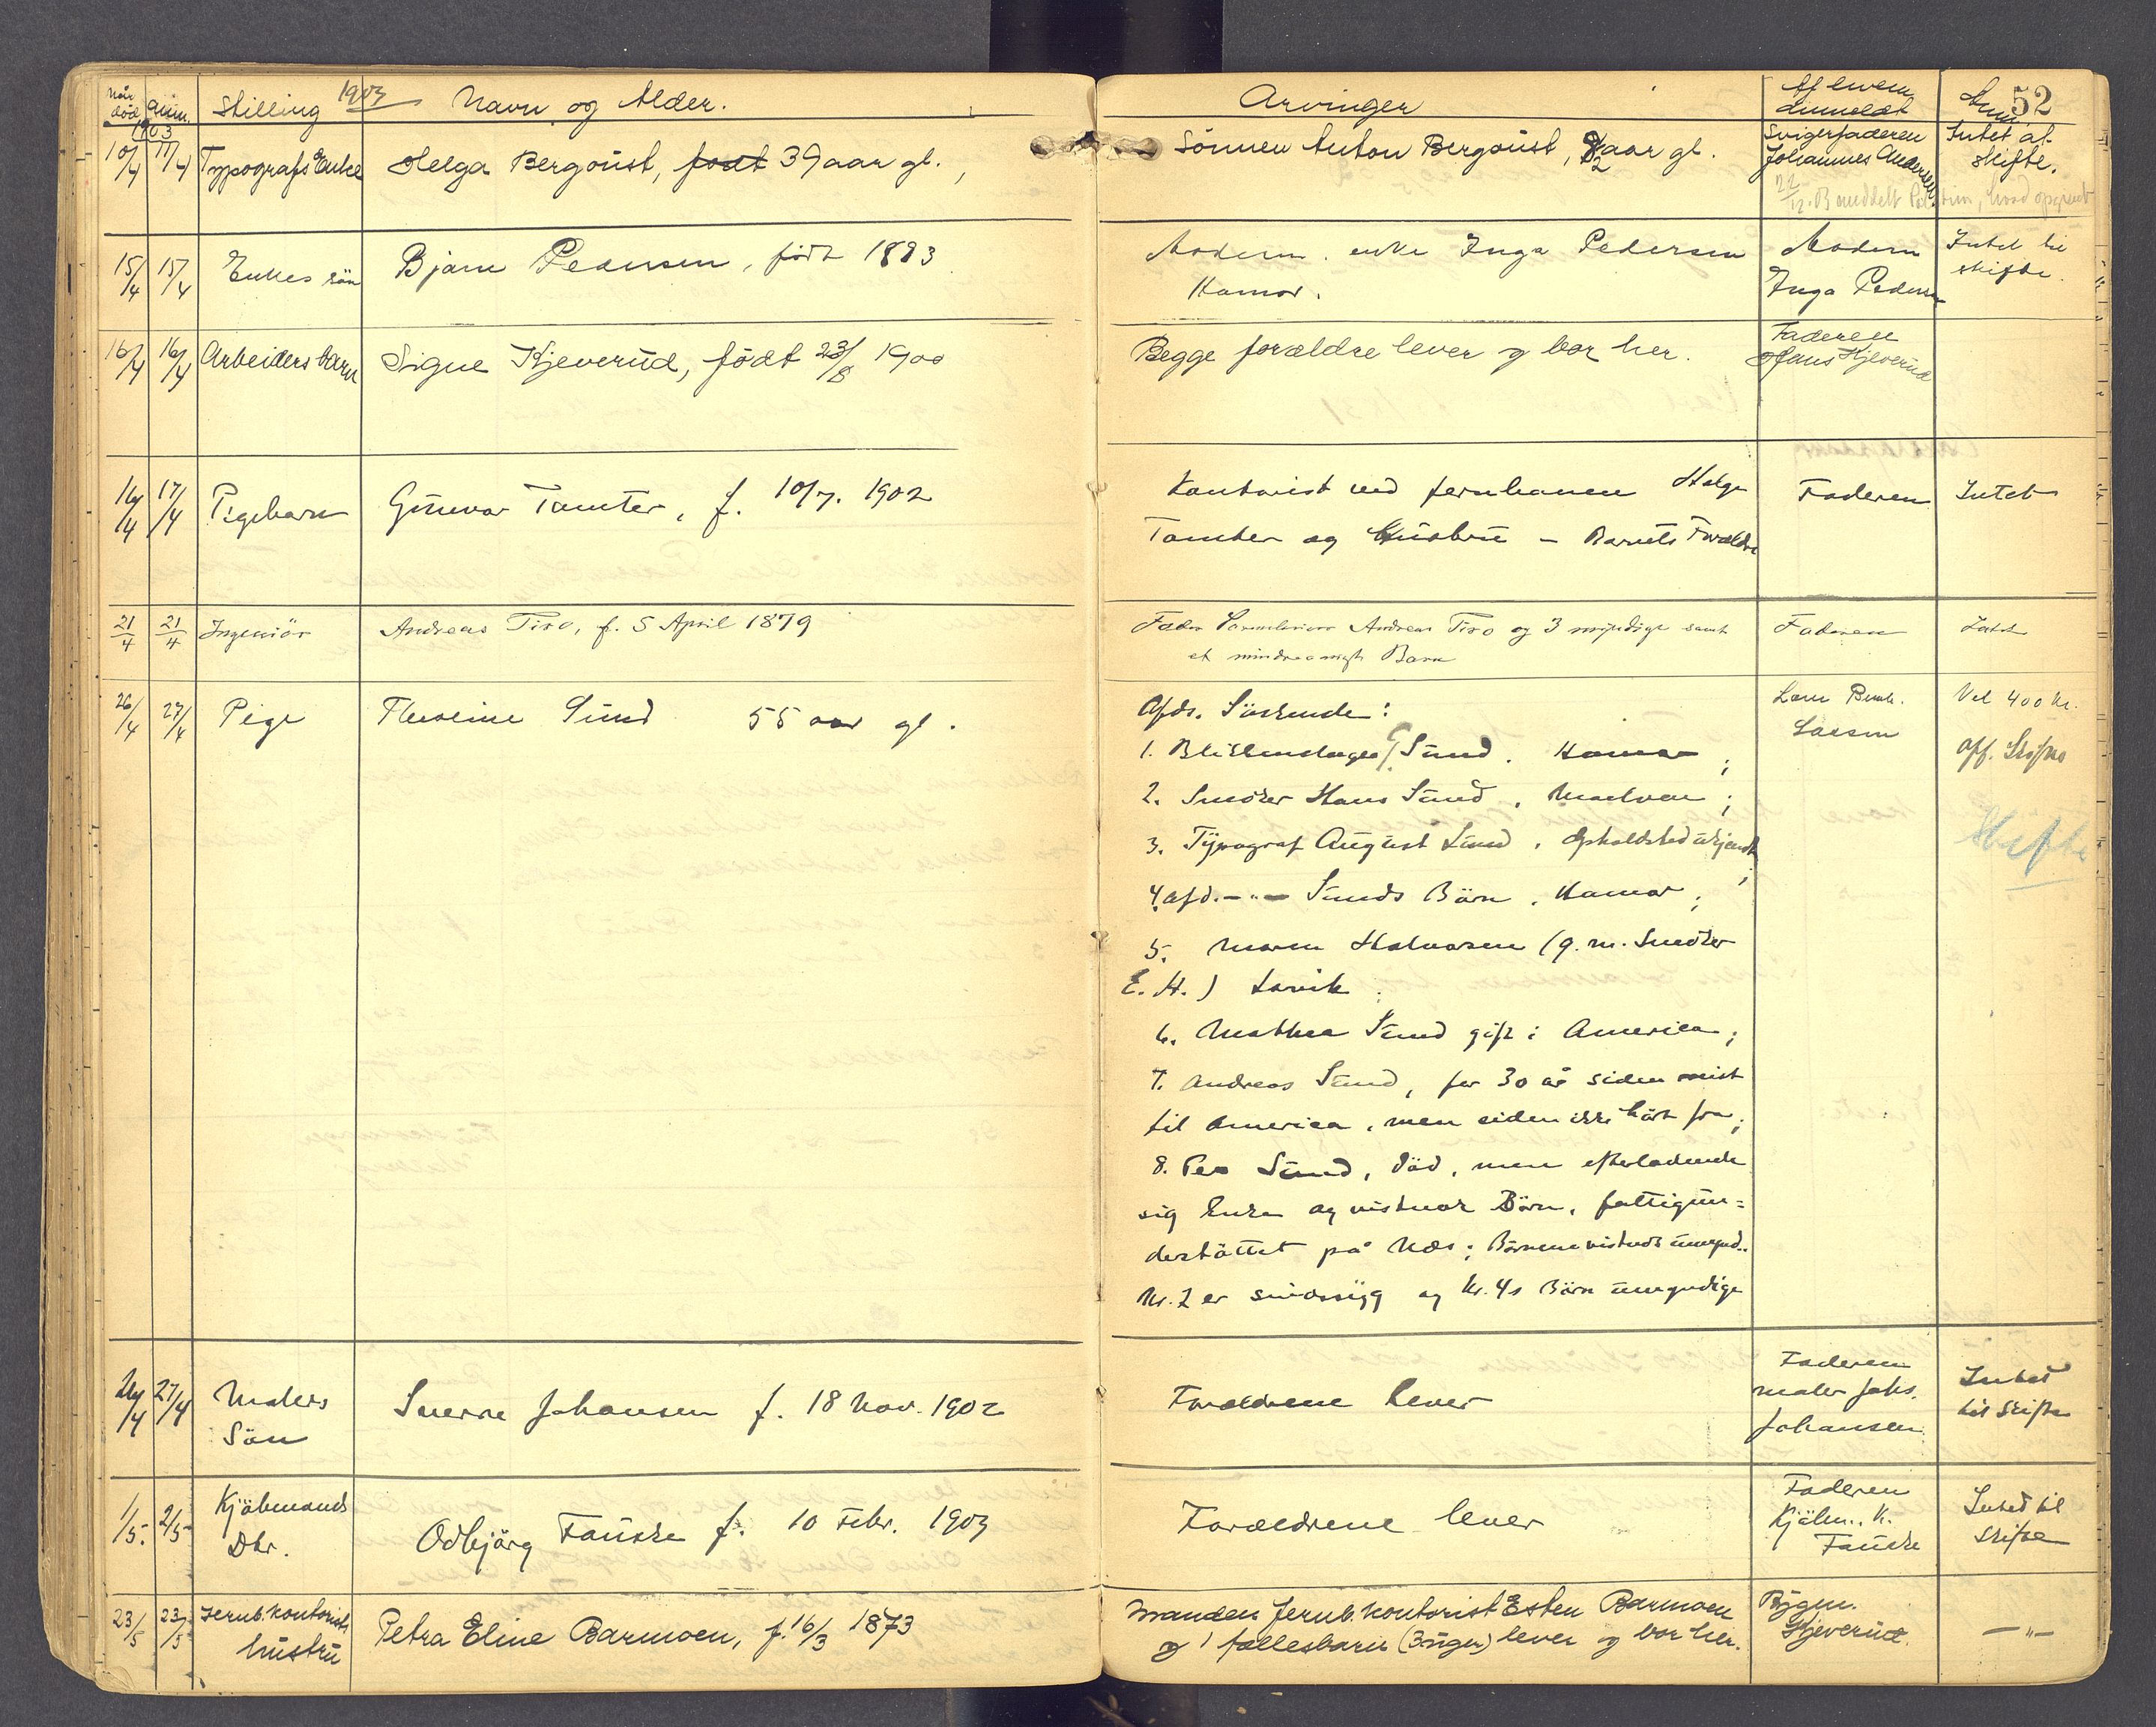 Når død
anm.
Stilling
1903
Navn og Alder.
Arvinger
Af hvem Anmeldt
Anm
52
1903
10/4 11/4 Typografs Enke Helga Bergquist, født 39 aar gl.,
Sönnen Anton Bergquist, 8½ aar gl.
Svigerfaderen
Johannes Andersen.
Intet at
skifte.
22/12.
15/4 15/4 Enkes sön Bjarne Pedersen, født 1883
Moderen, enke Inga Pedersen
Hamar.
Modern
Inga Pedersen
Intet til
skifte.
16/4 16/4 Arbeiders barn Signe Kjeverud, född 23/8 1900
Begge forældre lever og bor her.
Faderen
Hans Kjeverud
16/4 17/4 Pigebarn Gunvor Tomter, f. 10/7. 1902
Kontorist ved jernbanen Helge
Tomter og Hustru - Barnets Forældre
Faderen
Intet
21/4 21/4 Ingeniör Andreas Tiro, f. 5 April 1879
Fader Andreas Tiro og 3 myndige samt
et mindreaarigt Barn
Faderen
Intet
26/4 27/4 Pige Theoline Sund 55 aar gl.
Afds. Söskende:
1. Blikkenslager G. Sund. Hamar;
2. Snedker Hans Sund,
3. Typograf August Sund, Opholdsted ukjendt;
4. afd. -"- Sunds Börn, Hamar;
5. Maren Halvorsen (g. m. Snedker
E. H.) Larvik.
6. Mathea Sund gift i America;
7. Andreas Sund, for 30 år siden reist
til America, men siden ikke hört fra;
8. Per Sund, död, men efterladende
sig Enke og vistnok Börn, fattigun=
derstöttet på Næs; Börnene vistnok umynd.
Nr. 2 er sindssyg og Nr. 4s Börn umyndige
Lars
Larsen
Vel 400 Kr.
Off. Skifte
Skifte
26/4 27/4 Malers
Sön
Sverre Johansen f. 18 Nov. 1902
Forældrene lever
Faderen
maler Johs.
Johansen
Intet
til Skifte
1/5. 2/5 Kjöbmands
Dtr.
Odbjörg Fauske f. 10 Febr. 1903
Forældrene lever
Faderen
Kjöbm. K.
Fauske
Intet til
Skifte
23/5 23/5 Jernb.kontorists
hustru
Petra Eline Barmoen, f. 16/3 1873
Manden Jernb.kontorist Esten Barmoen
og 1 fællesbarn (3 uger) lever og bor her.
Bygm.
Kjeverud.
-"-